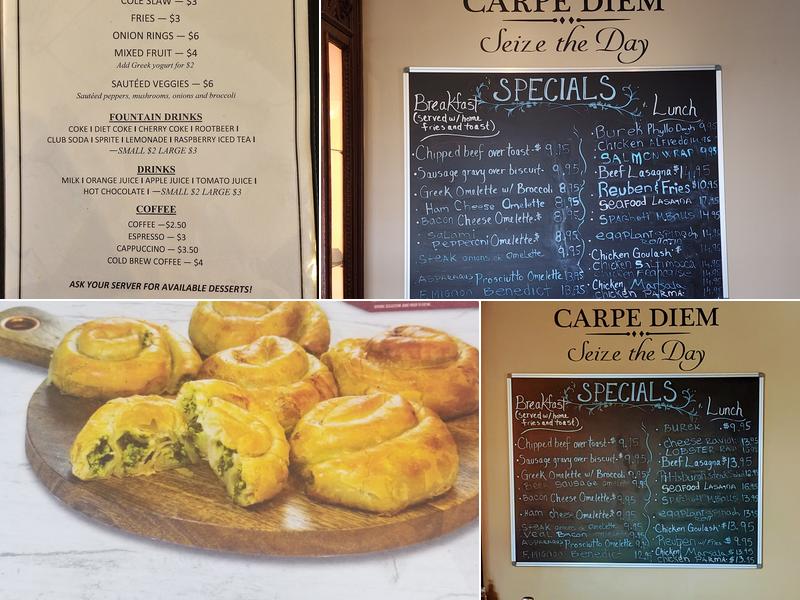 COLE SLAW — $3
FRIES — $3
ONION RINGS — $6
MIXED FRUIT — $4
Add Greek yogurt for $2
SAUTÉED VEGGIES — $6
Sautéed peppers, mushrooms, onions and broccoli
FOUNTAIN DRINKS
COKE I DIET COKE I CHERRY COKE I ROOTBEER I
CLUB SODA I SPRITE I LEMONADE I RASPBERRY ICED TEA I
—SMALL $2 LARGE $3
DRINKS
MILK I ORANGE JUICE I APPLE JUICE I TOMATO JUICE I
HOT CHOCOLATE I —SMALL $2 LARGE $3
COFFEE
COFFEE —$2.50
ESPRESSO — $3
CAPPUCCINO — $3.50
COLD BREW COFFEE — $4
ASK YOUR SERVER FOR AVAILABLE DESSERTS!
CARPE DIEM
Seize the Day
SPECIALS
Breakfast
(served w/ home
fries and toast)
Chipped beef over toast $9.95
Sausage gravy over biscuit
Greek Omelette w/ Broccoli 8.95
Ham Cheese Omelette 8.95
Bacon Cheese Omelette $
Salami
Pepperoni Omelette $ 8.95
Steak onions Omelette 9.95
Asparagus Prosciutto Omelette 13.95
F. Mignon Benedict 13.95
Lunch
Burek Phyllo Dough 9.95
Chicken Alfredo
SALMON WRAP
Beef Lasagna $
Reuben & Fries $10.95
Seafood Lasagna
Spaghetti M. Balls 14.95
eggplant
Chicken Goulash $
Chicken Saltimbocca
Chicken Francaise
Chicken Marsala
Chicken Parma
CARPE DIEM
Seize the Day
SPECIALS
Breakfast
(served w/ home
fries and toast)
Chipped beef over toast $9.95
Sausage gravy over biscuit 9.95
Greek Omelette w/ Broccoli
Beef Sausage
Bacon Cheese Omelette $9.95
Ham cheese Omelette
Steak Omelette
Veal Bacon
Asparagus Prosciutto Omelette
F. Mignon Benedict
Lunch
BUREK $9.95
Cheese Ravioli 13.95
LOBSTER
Beef Lasagna $13.95
Pittsburgh
Seafood Lasagna
M. Balls
eggplant
Chicken Goulash $13.95
Reuben w/ Fries $9.95
Chicken Marsala $13.95
Chicken Parma $13.95